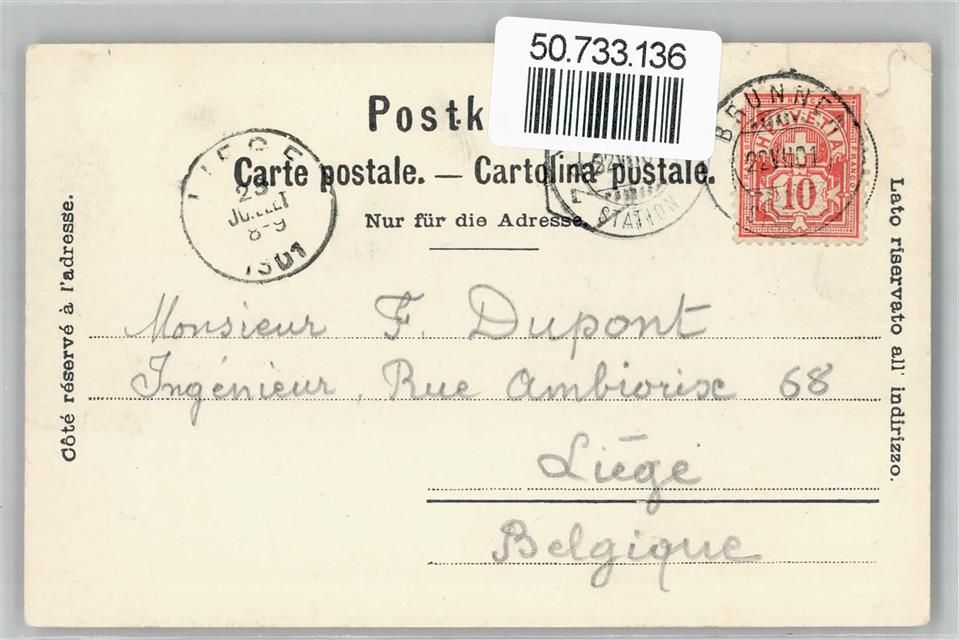 50.733.136
Postk
Carte postale. — Cartolina postale.
Nur für die Adresse.
Côté réservé à l'adresse.
Lato riservato all' indirizzo.
LIEGE
23
JUILLET
8-9
1901
STATION
BRUNNEN
22 VII 01
HELVETIA
FRANCO
10
Monsieur F. Dupont
Ingénieur, Rue Ambiorix 68
Liége
Belgique